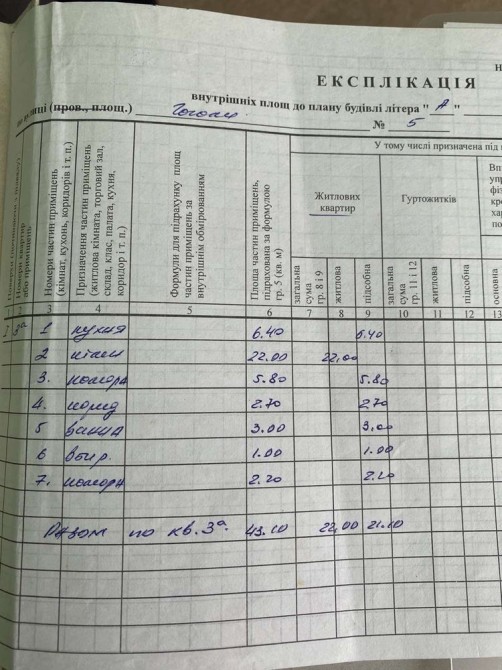 ЕКСПЛІКАЦІЯ
внутрішніх площ до плану будівлі літера " А "
вулиці (пров., площ.) Гоголя № 5
У тому числі призначена під
Номери частин приміщень (кімнат, кухонь, коридорів і т. п.)
Призначення частин приміщень (житлова кімната, торговий зал, склад, клас, палата, кухня, коридор і т. п.)
Формули для підрахунку площ частин приміщень за внутрішнім обмірюванням
Площа частин приміщень, підрахована за формулою гр. 5 (кв. м)
Житлових квартир
Гуртожитків
загальна сума гр. 8 і 9
житлова
підсобна
загальна сума гр. 11 і 12
житлова
підсобна
основна
2 3 4 5 6 7 8 9 10 11 12 13
3а 1 кухня 6.40 6.40
2 22.00 22,00
3. комора 5.80 5.80
4. корид 2.70 2.70
5 ванна 3.00 3,00
6 вбир. 1.00 1.00
7. комора 2.20 2.20
Разом по кв. 3а. 43.10 22,00 21.10